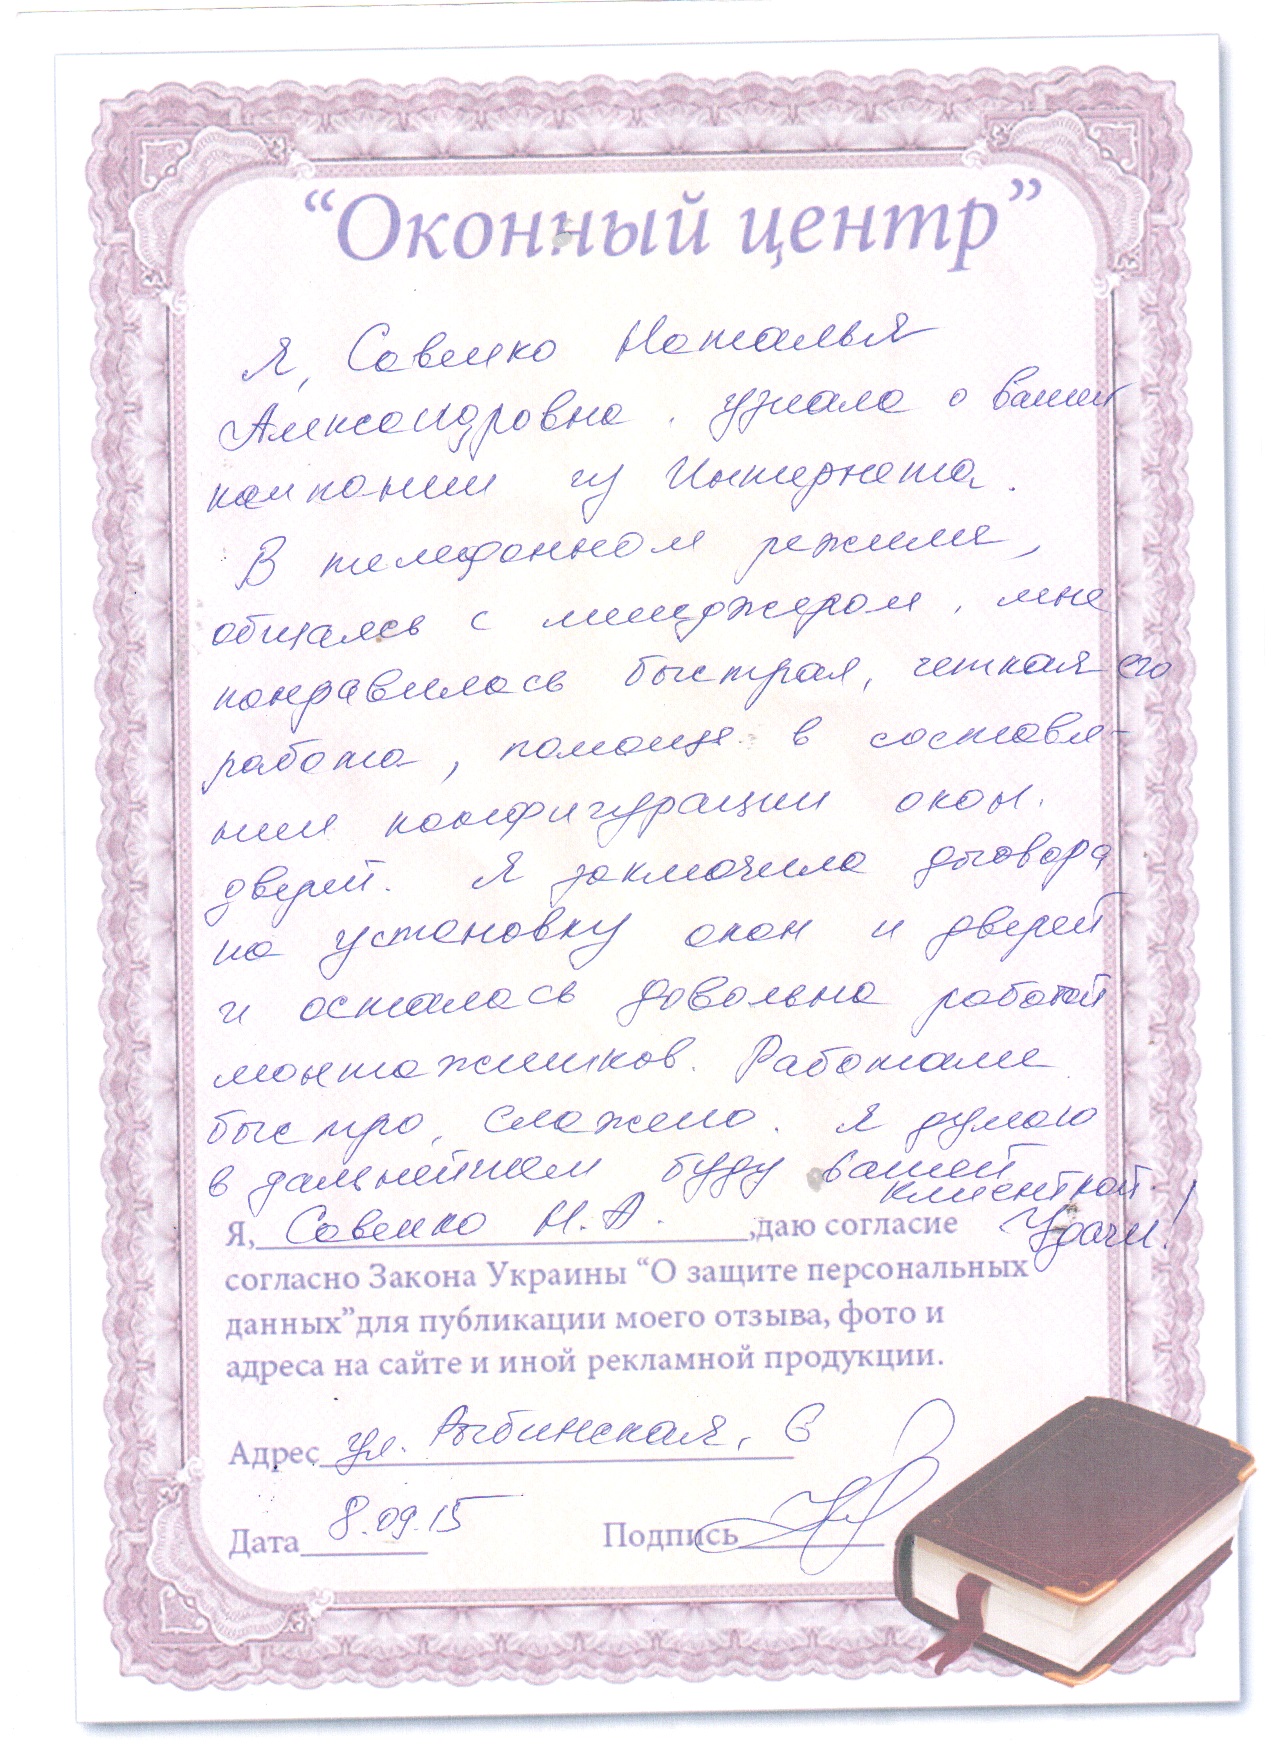 “Оконный центр”
Я, Савенко Наталья
Александровна, узнала о вашей
компании из Интернета.
В телефонном режиме,
общаясь с менеджером, мне
понравилась быстрая, четкая его
работа, помощь в составле-
нии конфигурации окон,
дверей. Я заключила договора
на установку окон и дверей
и осталась довольна работой
монтажников. Работали
быстро, слажено. Я думаю
в дальнейшем буду вашей
клиенткой.
Удачи!
Я, Савенко Н.А. ,даю согласие
согласно Закона Украины “О защите персональных
данных”для публикации моего отзыва, фото и
адреса на сайте и иной рекламной продукции.
Адрес ул. Рыбинская, 6
Дата 8.09.15 Подпись